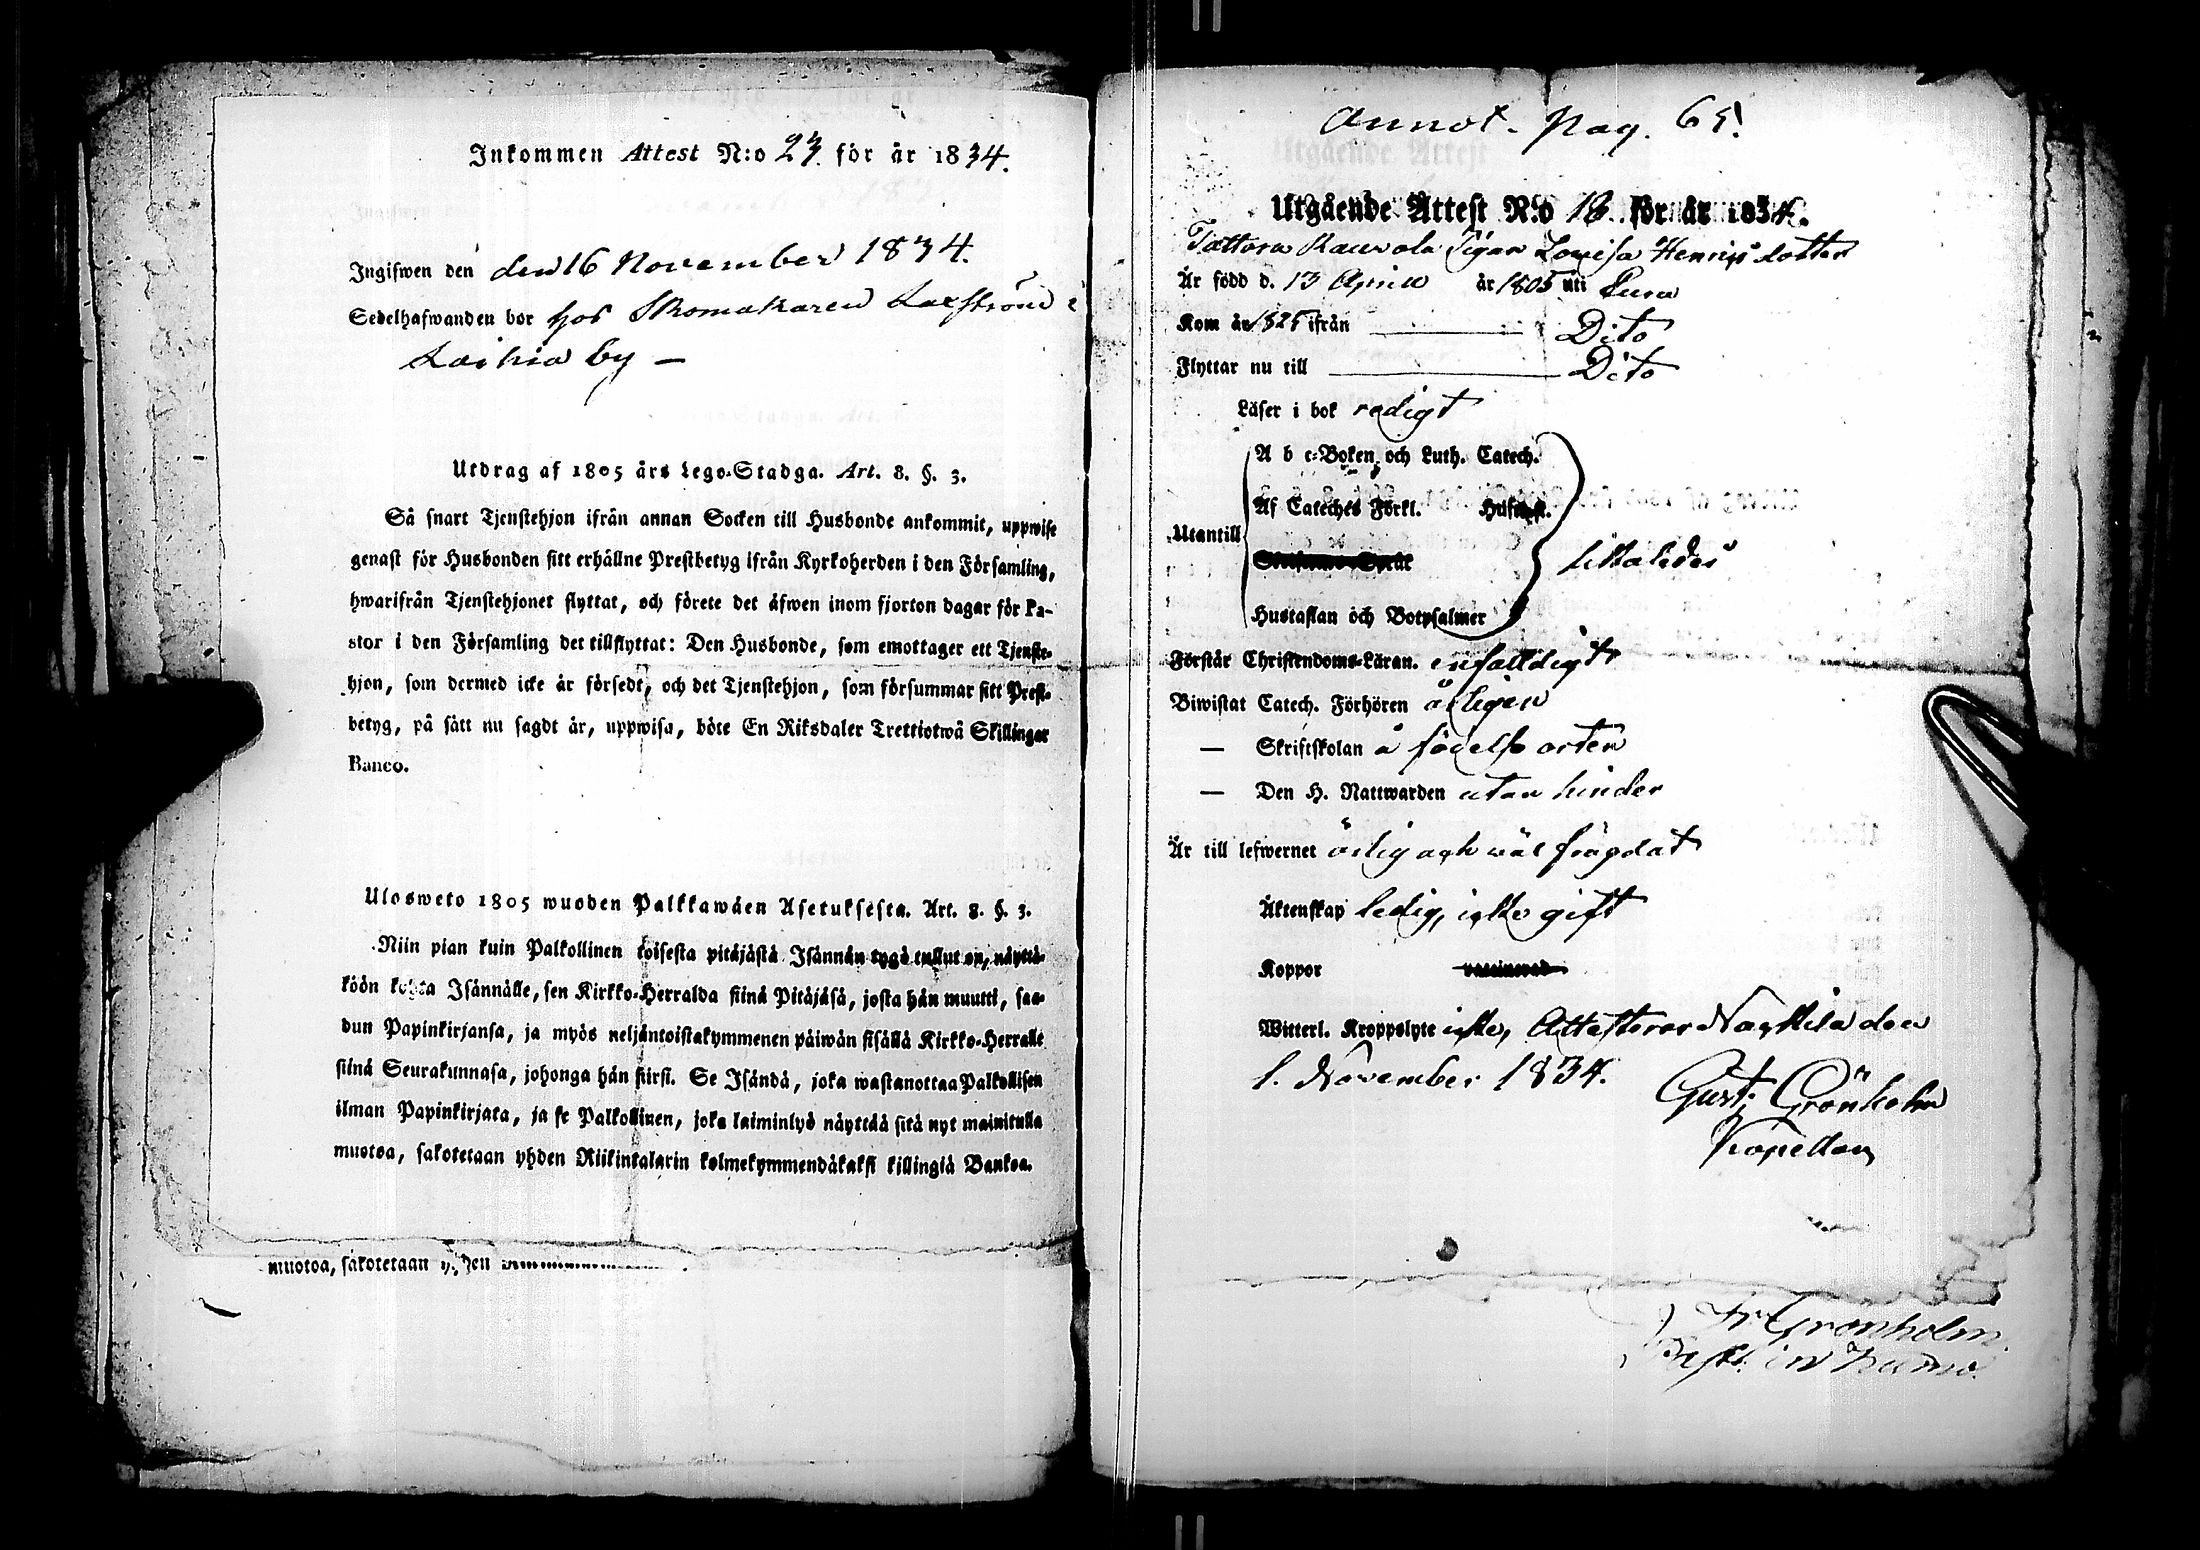 Inkommen Attest N:o 23. för år 1834.
Ingifwen den den 16 November 1834.
Sedelhafwanden bor hos Skomakaren Laxström i
Laihia by —
Utdrag af 1805 års Lego-Stadga. Art. 8. §. 3.
Så snart Tjenstehjon ifrån annan Socken till Husbonde ankommit, uppwise
genast för Husbonden sitt erhållne Prestbetyg ifrån Kyrkoherden i den Församling,
hwarifrån Tjenstehjonet flyttat, och förete det äfwen inom fjorton dagar för Pa-
stor i den Församling det tillflyttat: Den Husbonde, som emottager ett Tjenste-
hjon, som dermed icke är försedt, och det Tjenstehjon, som försummar sitt Prest-
betyg, på sätt nu sagdt är, uppwisa, böte En Riksdaler Trettiotwå Skillingar
Banco.
Ulosweto 1805 wuoden Palkkawäen Asetuksesta. Art. 8. §. 3.
Niin pian kuin Palkollinen toisesta pitäjästä Isännän tygö tullut on, näyttä-
köön kohta Isännälle, sen Kirkko-Herralda siinä Pitäjäsä, josta hän muutti, saa-
dun Papinkirjansa, ja myös neljäntoistakymmenen päiwän sisällä Kirkko-Herralle
siinä Seurakunnasa, johonga hän siirsi. Se Isändä, joka wastanottaa Palkollisen
ilman Papinkirjata, ja se Palkollinen, joka laiminlyö näyttää sitä nyt mainitulla
muotoa, sakotetaan yhden Riikintalarin kolmekymmendäkaksi killingiä Bankoa.
muotoa, sakotetaan yhden
Annot. Pag. 65.
Utgående Attest N:o 18. för år 1834.
Tattara Kauvola Pigan Lovisa Henricsdotter
Är född d. 13 April år 1805 uti Eura
Kom år 1825 ifrån — Dito
Flyttar nu till — Dito
Läser i bok redigt
Utantill
A b c-Boken och Luth. Catech.
Af Cateches Förkl. Husförh.
likaledes
Hustaflan och Botpsalmer
Förstår Christendoms-Läran. enfaldigt
Biwistat Catech. Förhören årligen
— Skriftskolan å födelse orten
— Den H. Nattwarden utan hinder
Är till lefwernet ärlig och wäl frägdat
Äktenskap ledig, icke gift
Koppor vaccinerad
Witterl. Kroppslyte icke, Attesterar Nackila den
1. November 1834.
Gust. Grönholm
Kapellan
Fr Grönholm